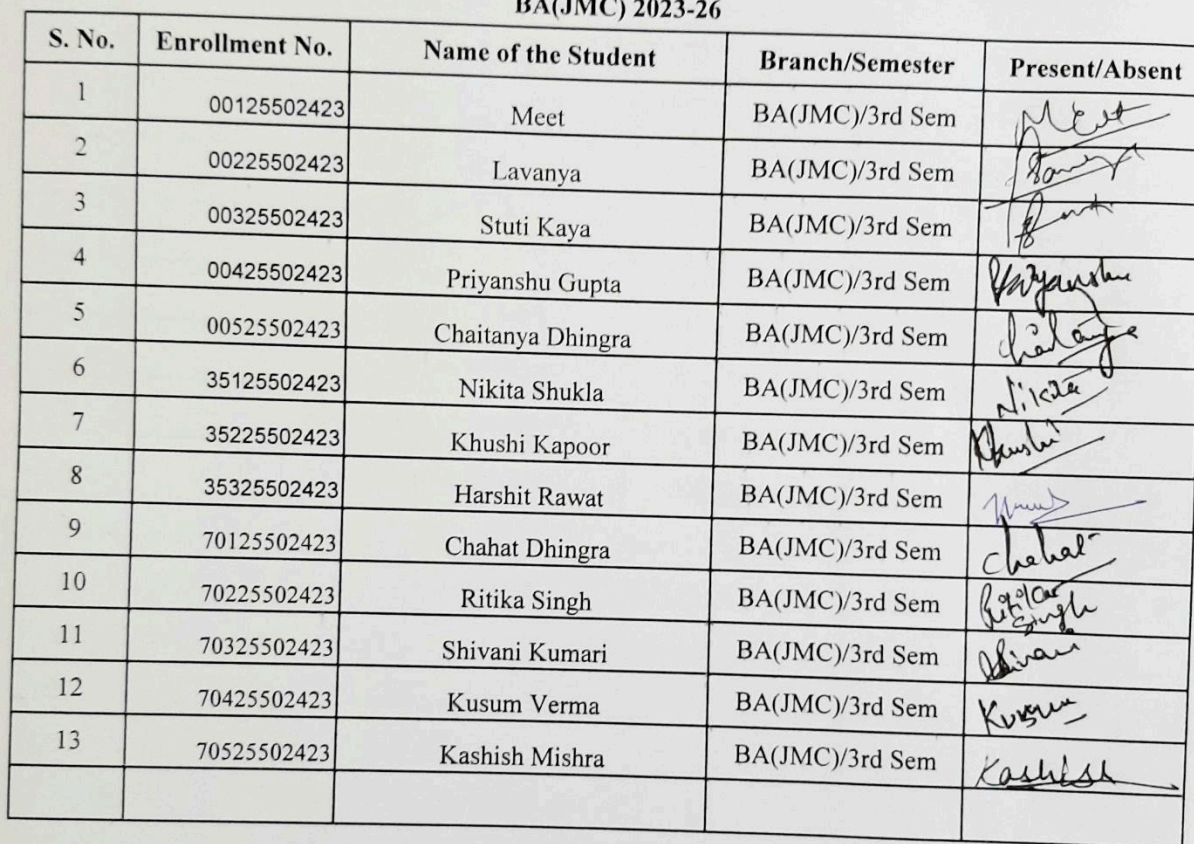 BA(JMC) 2023-26
S. No. Enrollment No. Name of the Student Branch/Semester Present/Absent
1 00125502423 Meet BA(JMC)/3rd Sem Meet
2 00225502423 Lavanya BA(JMC)/3rd Sem
3 00325502423 Stuti Kaya BA(JMC)/3rd Sem
4 00425502423 Priyanshu Gupta BA(JMC)/3rd Sem Priyanshu
5 00525502423 Chaitanya Dhingra BA(JMC)/3rd Sem Chaitanya
6 35125502423 Nikita Shukla BA(JMC)/3rd Sem Nikita
7 35225502423 Khushi Kapoor BA(JMC)/3rd Sem Khushi
8 35325502423 Harshit Rawat BA(JMC)/3rd Sem
9 70125502423 Chahat Dhingra BA(JMC)/3rd Sem Chahat
10 70225502423 Ritika Singh BA(JMC)/3rd Sem Ritika Singh
11 70325502423 Shivani Kumari BA(JMC)/3rd Sem Shivani
12 70425502423 Kusum Verma BA(JMC)/3rd Sem Kusum
13 70525502423 Kashish Mishra BA(JMC)/3rd Sem Kashish